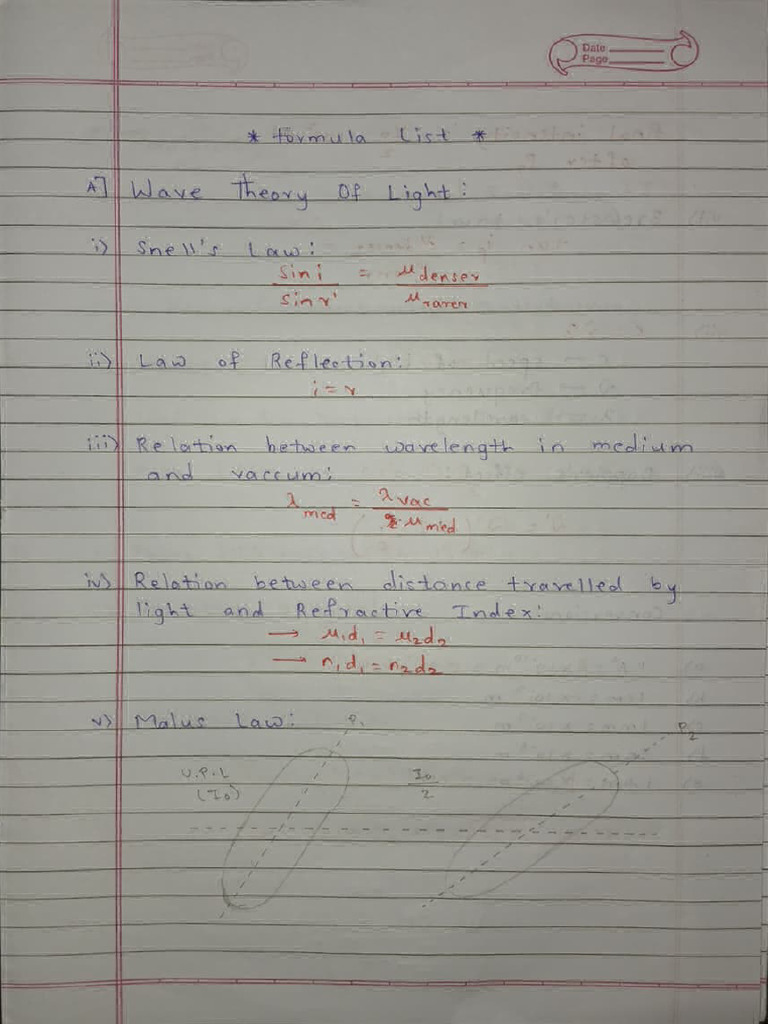 Date
Page
* Formula List *
A] Wave Theory Of Light:
i) Snell's Law:
sin i / sin r = μ denser / μ rarer
ii) Law of Reflection:
i = r
iii) Relation between wavelength in medium
and vaccum:
λ med = λ vac / μ med
iv) Relation between distance travelled by
light and Refractive Index:
→ μ₁d₁ = μ₂d₂
→ n₁d₁ = n₂d₂
v) Malus Law:
P₁ P₂
U.P.L I₀/2
(I₀)